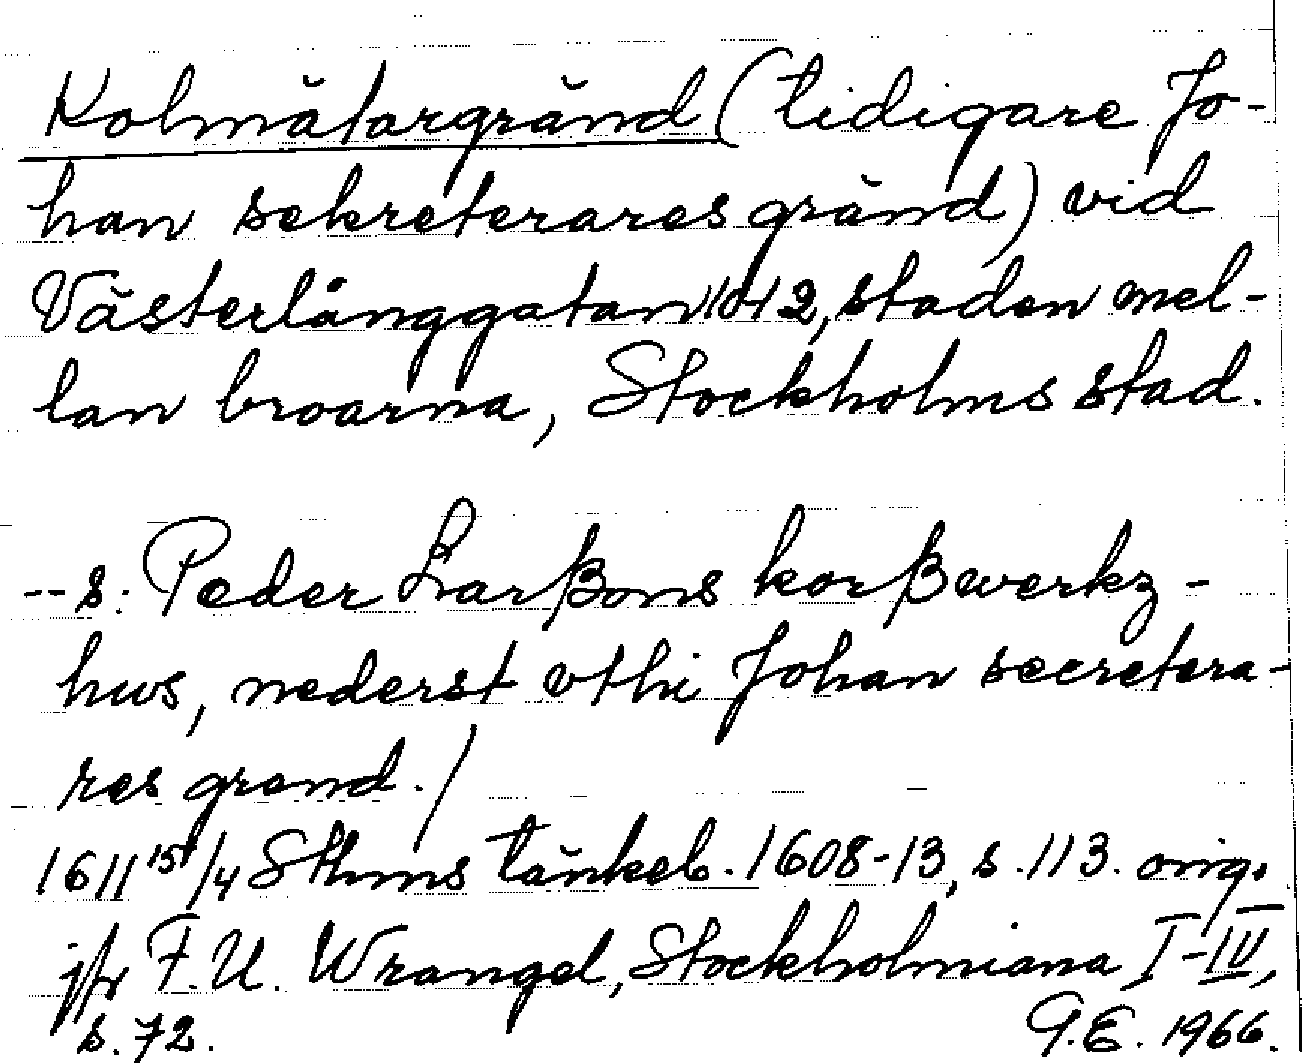 Kolmätargränd (tidigare Jo-
han sekreterares gränd) vid
Västerlånggatan 10-12, staden mel-
lan broarna, Stockholms stad.
--s: Peder Larßons korßwerkz-
hws, nederst vthi Johan secretera-
res grend./
1611 15/4 Sthms tänkeb. 1608-13, s. 113. orig.
jfr F.U. Wrangel, Stockholmiana I-IV,
s. 72. G.E. 1966.